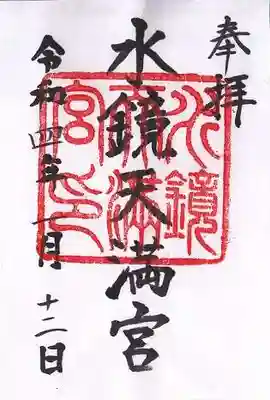 奉拝
水鏡天満宮
水鏡天満宮印
令和四年一月
十二日